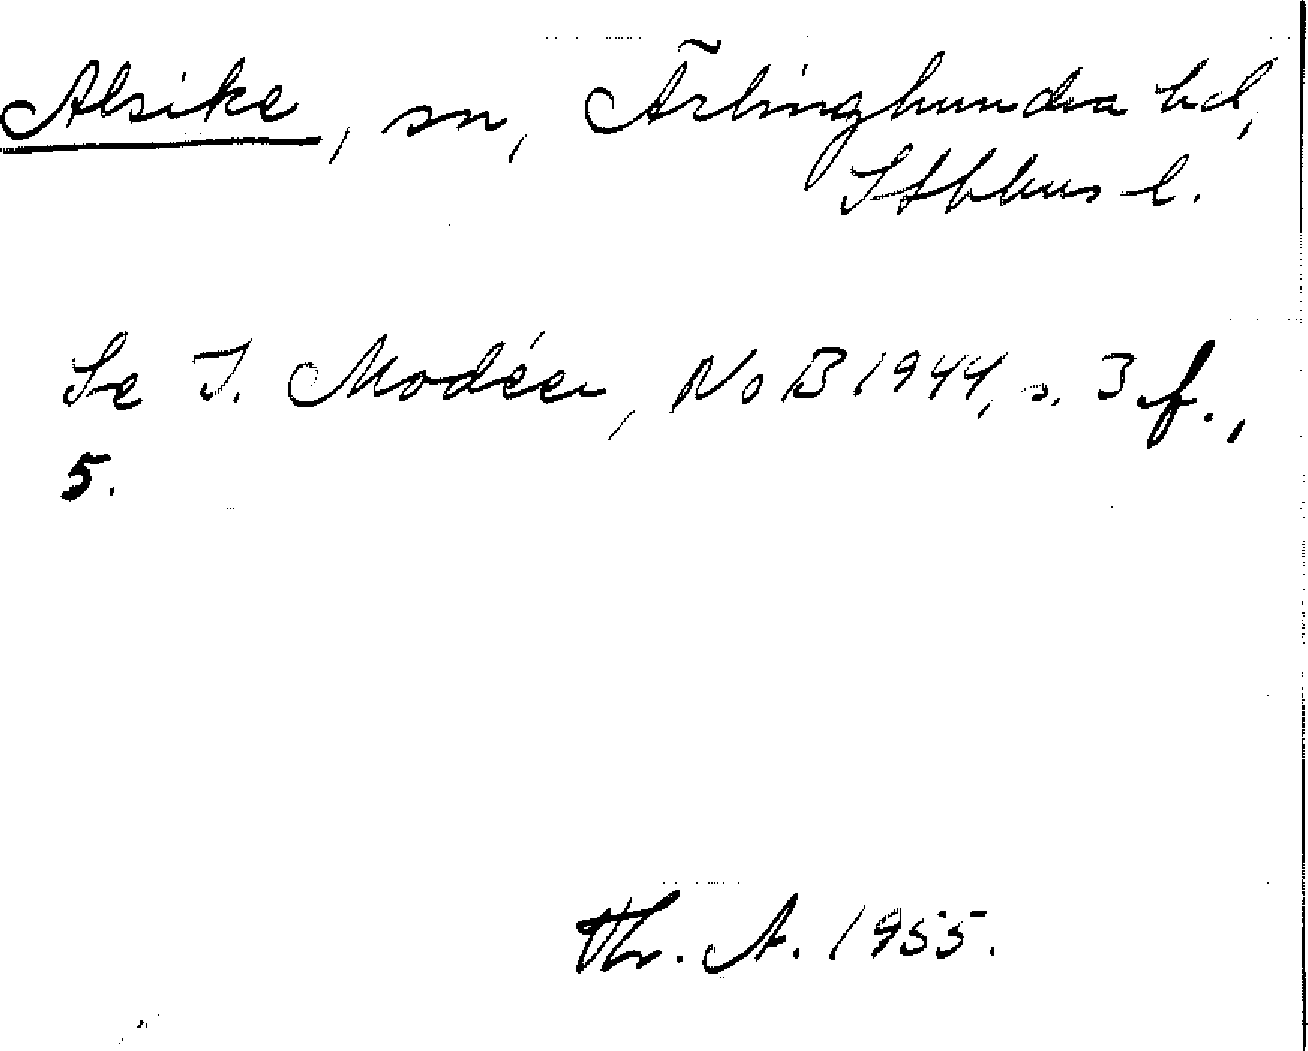 Alsike, sn, Ärlinghundra hd,
Sthlms l.
Se I. Modéer, NoB 1944, s. 3 f.,
5.
Hr. A. 1955.